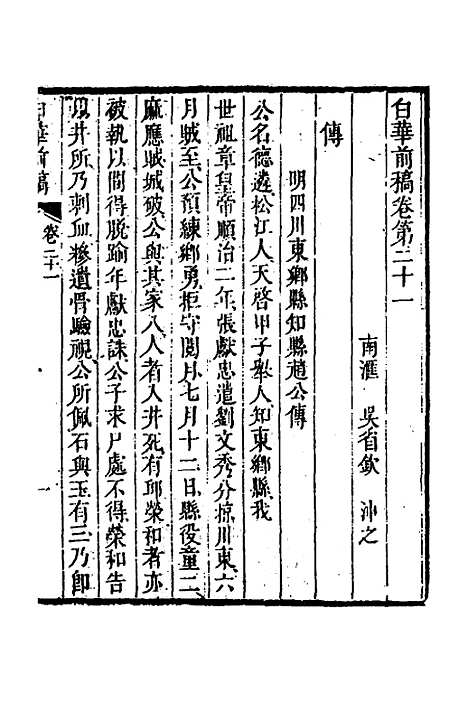 白華前稿卷第二十一
南滙　吳省欽　沖之
傳
明四川東鄉縣知縣趙公傳
公名德遴松江人天啓甲子舉人知東鄉縣我
世祖章皇帝順治二年張獻忠遣劉文秀分掠川東六
月賊至公預練鄉勇拒守閱月七月十二日縣役童二
麻應賊城破公與其家八人者入井死有邱榮和者亦
被執以間得脫踰年獻忠誅公子求尸處不得榮和告
以井所乃刺血滲遺骨驗視公所佩石與玉有三乃卽
白華前稿
卷二十一
一